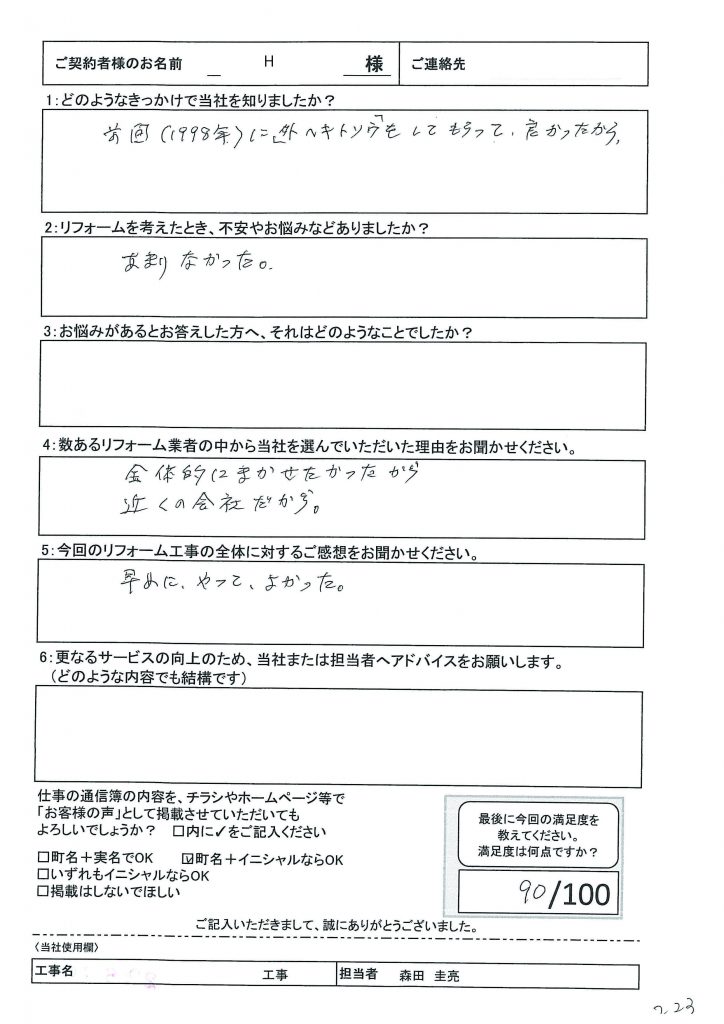 ご契約者様のお名前 H 様 ご連絡先
1:どのようなきっかけで当社を知りましたか?
前回(1998年)に「外ヘキトソウ」をしてもらって、良かったから、
2:リフォームを考えたとき、不安やお悩みなどありましたか?
あまりなかった。
3:お悩みがあるとお答えした方へ、それはどのようなことでしたか?
4:数あるリフォーム業者の中から当社を選んでいただいた理由をお聞かせください。
全体的にまかせたかったから
近くの会社だから。
5:今回のリフォーム工事の全体に対するご感想をお聞かせください。
早めに、やって、よかった。
6:更なるサービスの向上のため、当社または担当者へアドバイスをお願いします。
(どのような内容でも結構です)
仕事の通信簿の内容を、チラシやホームページ等で
「お客様の声」として掲載させていただいても
よろしいでしょうか? □内に✓をご記入ください
□町名+実名でOK ☑町名+イニシャルならOK
□いずれもイニシャルならOK
□掲載はしないでほしい
最後に今回の満足度を
教えてください。
満足度は何点ですか?
90/100
ご記入いただきまして、誠にありがとうございました。
〈当社使用欄〉
工事名 工事 担当者 森田 圭亮
7.23